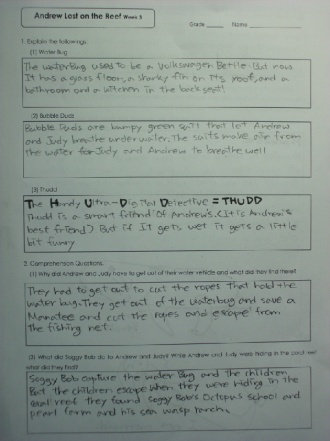 Andrew Lost on the Reef Week 5
Grade Name
1. Explain the followings.
(1) Water Bug
The waterbug used to be a Volkswagen Beetle. But now
It has a glass floor, a sharky fin on its roof, and a
bathroom and a kitchen in the backseat!
(2) Bubble Duds
Bubble Duds are bumpy green suit that let Andrew
and Judy breathe underwater. The suits make air from
the water for Judy and Andrew to breathe well
(3) Thudd
The Handy Ultra-Digital Detective = THUDD
Thudd is a smart friend of Andrew's. (It is Andrew's
best friend) But if It gets wet it gets a little
bit funny
2. Comprehension Questions.
(1) Why did Andrew and Judy have to get out of their water vehicle and what did they find there?
They had to get out to cut the ropes that hold the
water bug. They get out of the waterbug and save a
Manatee and cut the ropes and escape from
the fishing net.
(2) What did Soggy Bob do to Andrew and Judy? While Andrew and Judy were riding in the coral reef
what did they find?
Soggy Bob capture the water Bug and the children
But the children escape When they were riding in the
coral reef they found Soggy Bob's Octopus school and
pearl farm and his sea wasp ranch.